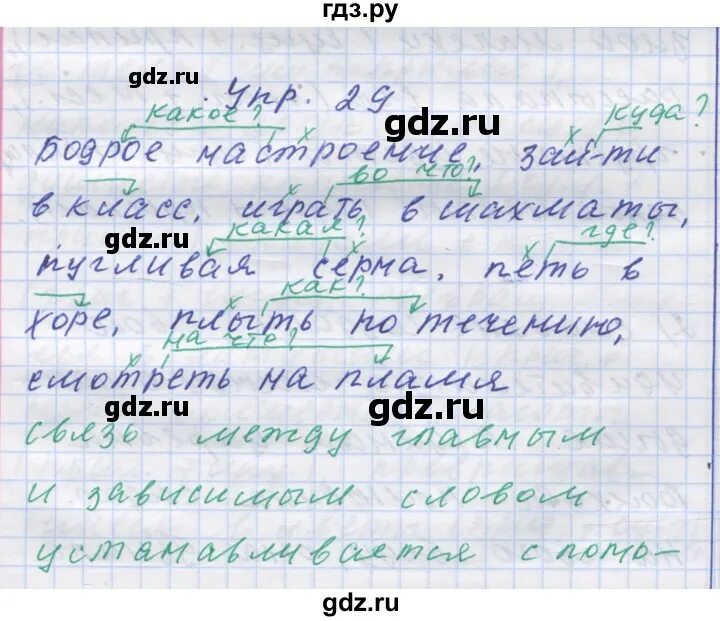 гдз.ру
gdz.ru
Упр. 29
какое? куда?
Бодрое настроение, зай-ти
gdz.ru
во что?
в класс, играть в шахматы,
gdz.ru
какая? где?
gdz.ru
пугливая серна, петь в
как?
хоре, плыть по течению,
gdz.ru
на что?
смотреть на пламя
gdz.ru
gdz.ru
связь между главным
и зависимым словом
gdz.ru
устанавливается с помо-
gdz.ru